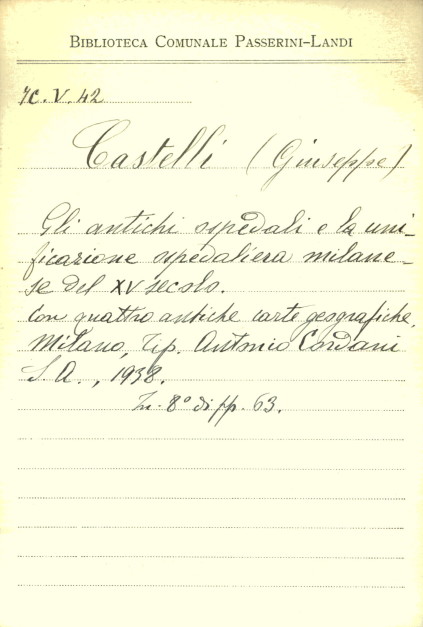 BIBLIOTECA COMUNALE PASSERINI-LANDI
7C. V. 42
Castelli (Giuseppe)
Gli antichi ospedali e la uni-
ficazione ospedaliera milane-
se del XV secolo.
Con quattro antiche carte geografiche.
Milano, Tip. Antonio Cordani
S. A., 1938.
In. 8° di pp. 63.